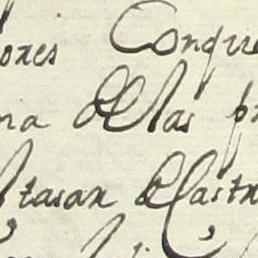 ones Conque
na dellas pr
ltasan dCastr